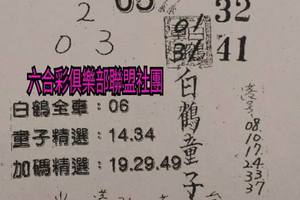 03
32
2
03
01
31
41
六合彩俱樂部聯盟社團
白鶴全車：06
童子精選：14.34
加碼精選：19.29.49
白鶴童子
08.
10.
17.
24.
33.
37